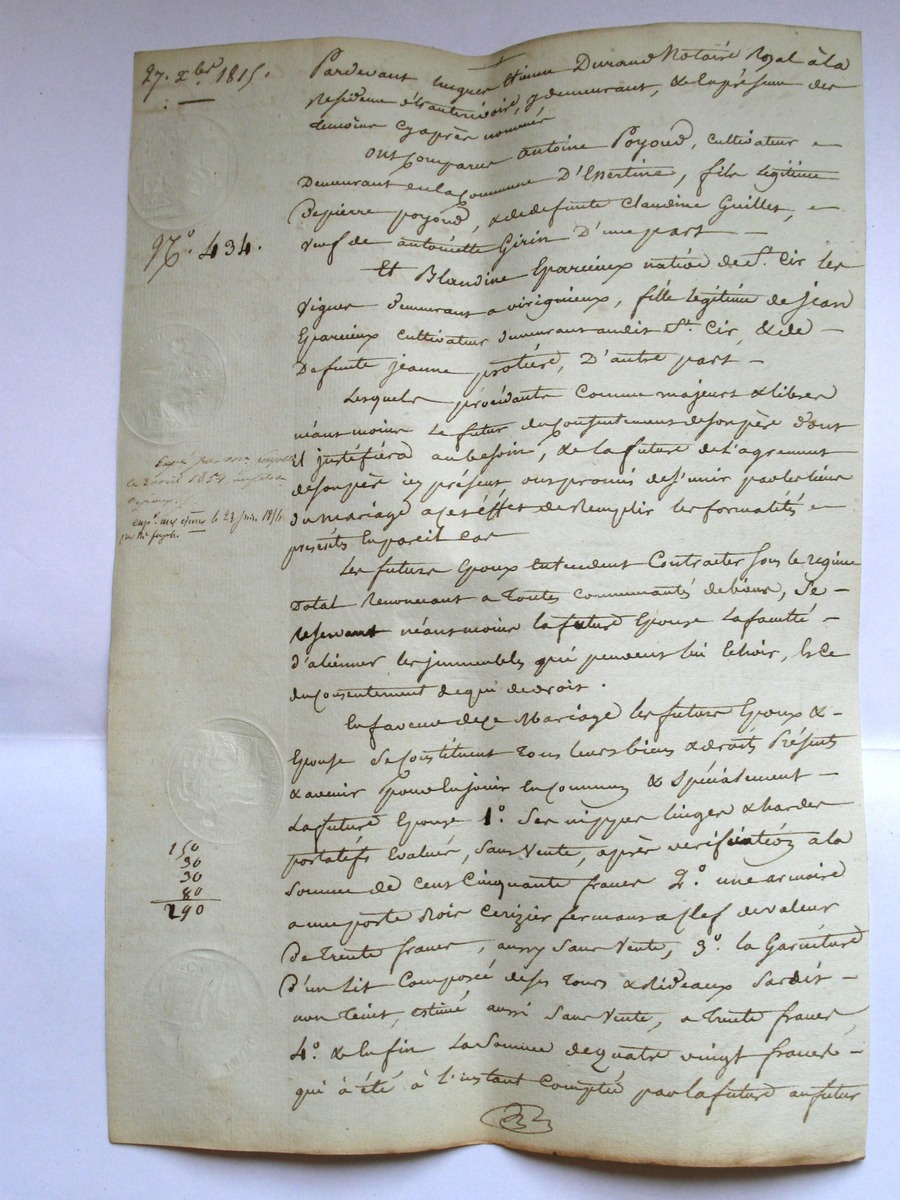 27. xbre 1815.
Pardevant Etienne Durand Notaire Royal à la
Residence demeurant, & en présence des
témoins cy après nommés
ont Comparu antoine Poyoud, cultivateur
Demeurant en la Commune D'Essertine, fils legitime
De pierre poyoud, & de defunte Claudine Guillet,
N°. 434.
veuf de antoinette Girin D'une part
Et Blandine Eparcieux native de St. Cir les
vignes demeurant a virignieux, fille legitime de jean
Eparcieux cultivateur demeurant audit St. Cir, & de
Defunte jeanne protiere, D'autre part
Lesquels procédants comme majeurs & libres
néant moins le futur du Consentement de son père dont
il justifiera au besoin, & la future de l'agrement
de son père icy présent ont promis de s'unir par les liens
du mariage a cet effet de Remplir les formalités
prescrites en pareil cas
le 2 avril 1854
expn. aux le 23 juin 1856
Les futurs Epoux entendent Contracter sous le regime
Dotal Renoncant a toutes communautés de biens, se
reservant néant moins la future Epouse La faculté
d'aliénner les immeubles qui peuvent lui échoir, du
consentement de qui de droit.
En faveur de ce Mariage les futurs Epoux &
Epouse se constituent tous leurs biens & droits Présents
& avenir pour en jouir en commun & spécialement
La future Epouse 1°. Ses nippes linges & hardes
portatifs Evalués, sans Vente, après verification a la
Somme de cent cinquante francs 2°. une armoire
a une porte Bois cerizier fermant a clef de valeur
De trente francs, aussy sans Vente, 3°. la Garniture
D'un Lit Composée de ses tours & rideaux
Estimé aussi sans Vente, a trente francs
4°. & enfin La Somme de quatre vingt francs
qui à été à l'instant Comptée par la future au futur
150
30
30
80
290